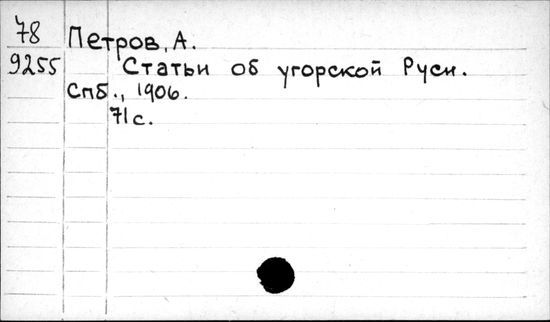 78
9255
Петров, А.
Статьи об угорской Руси.
Спб., 1906.
71 с.